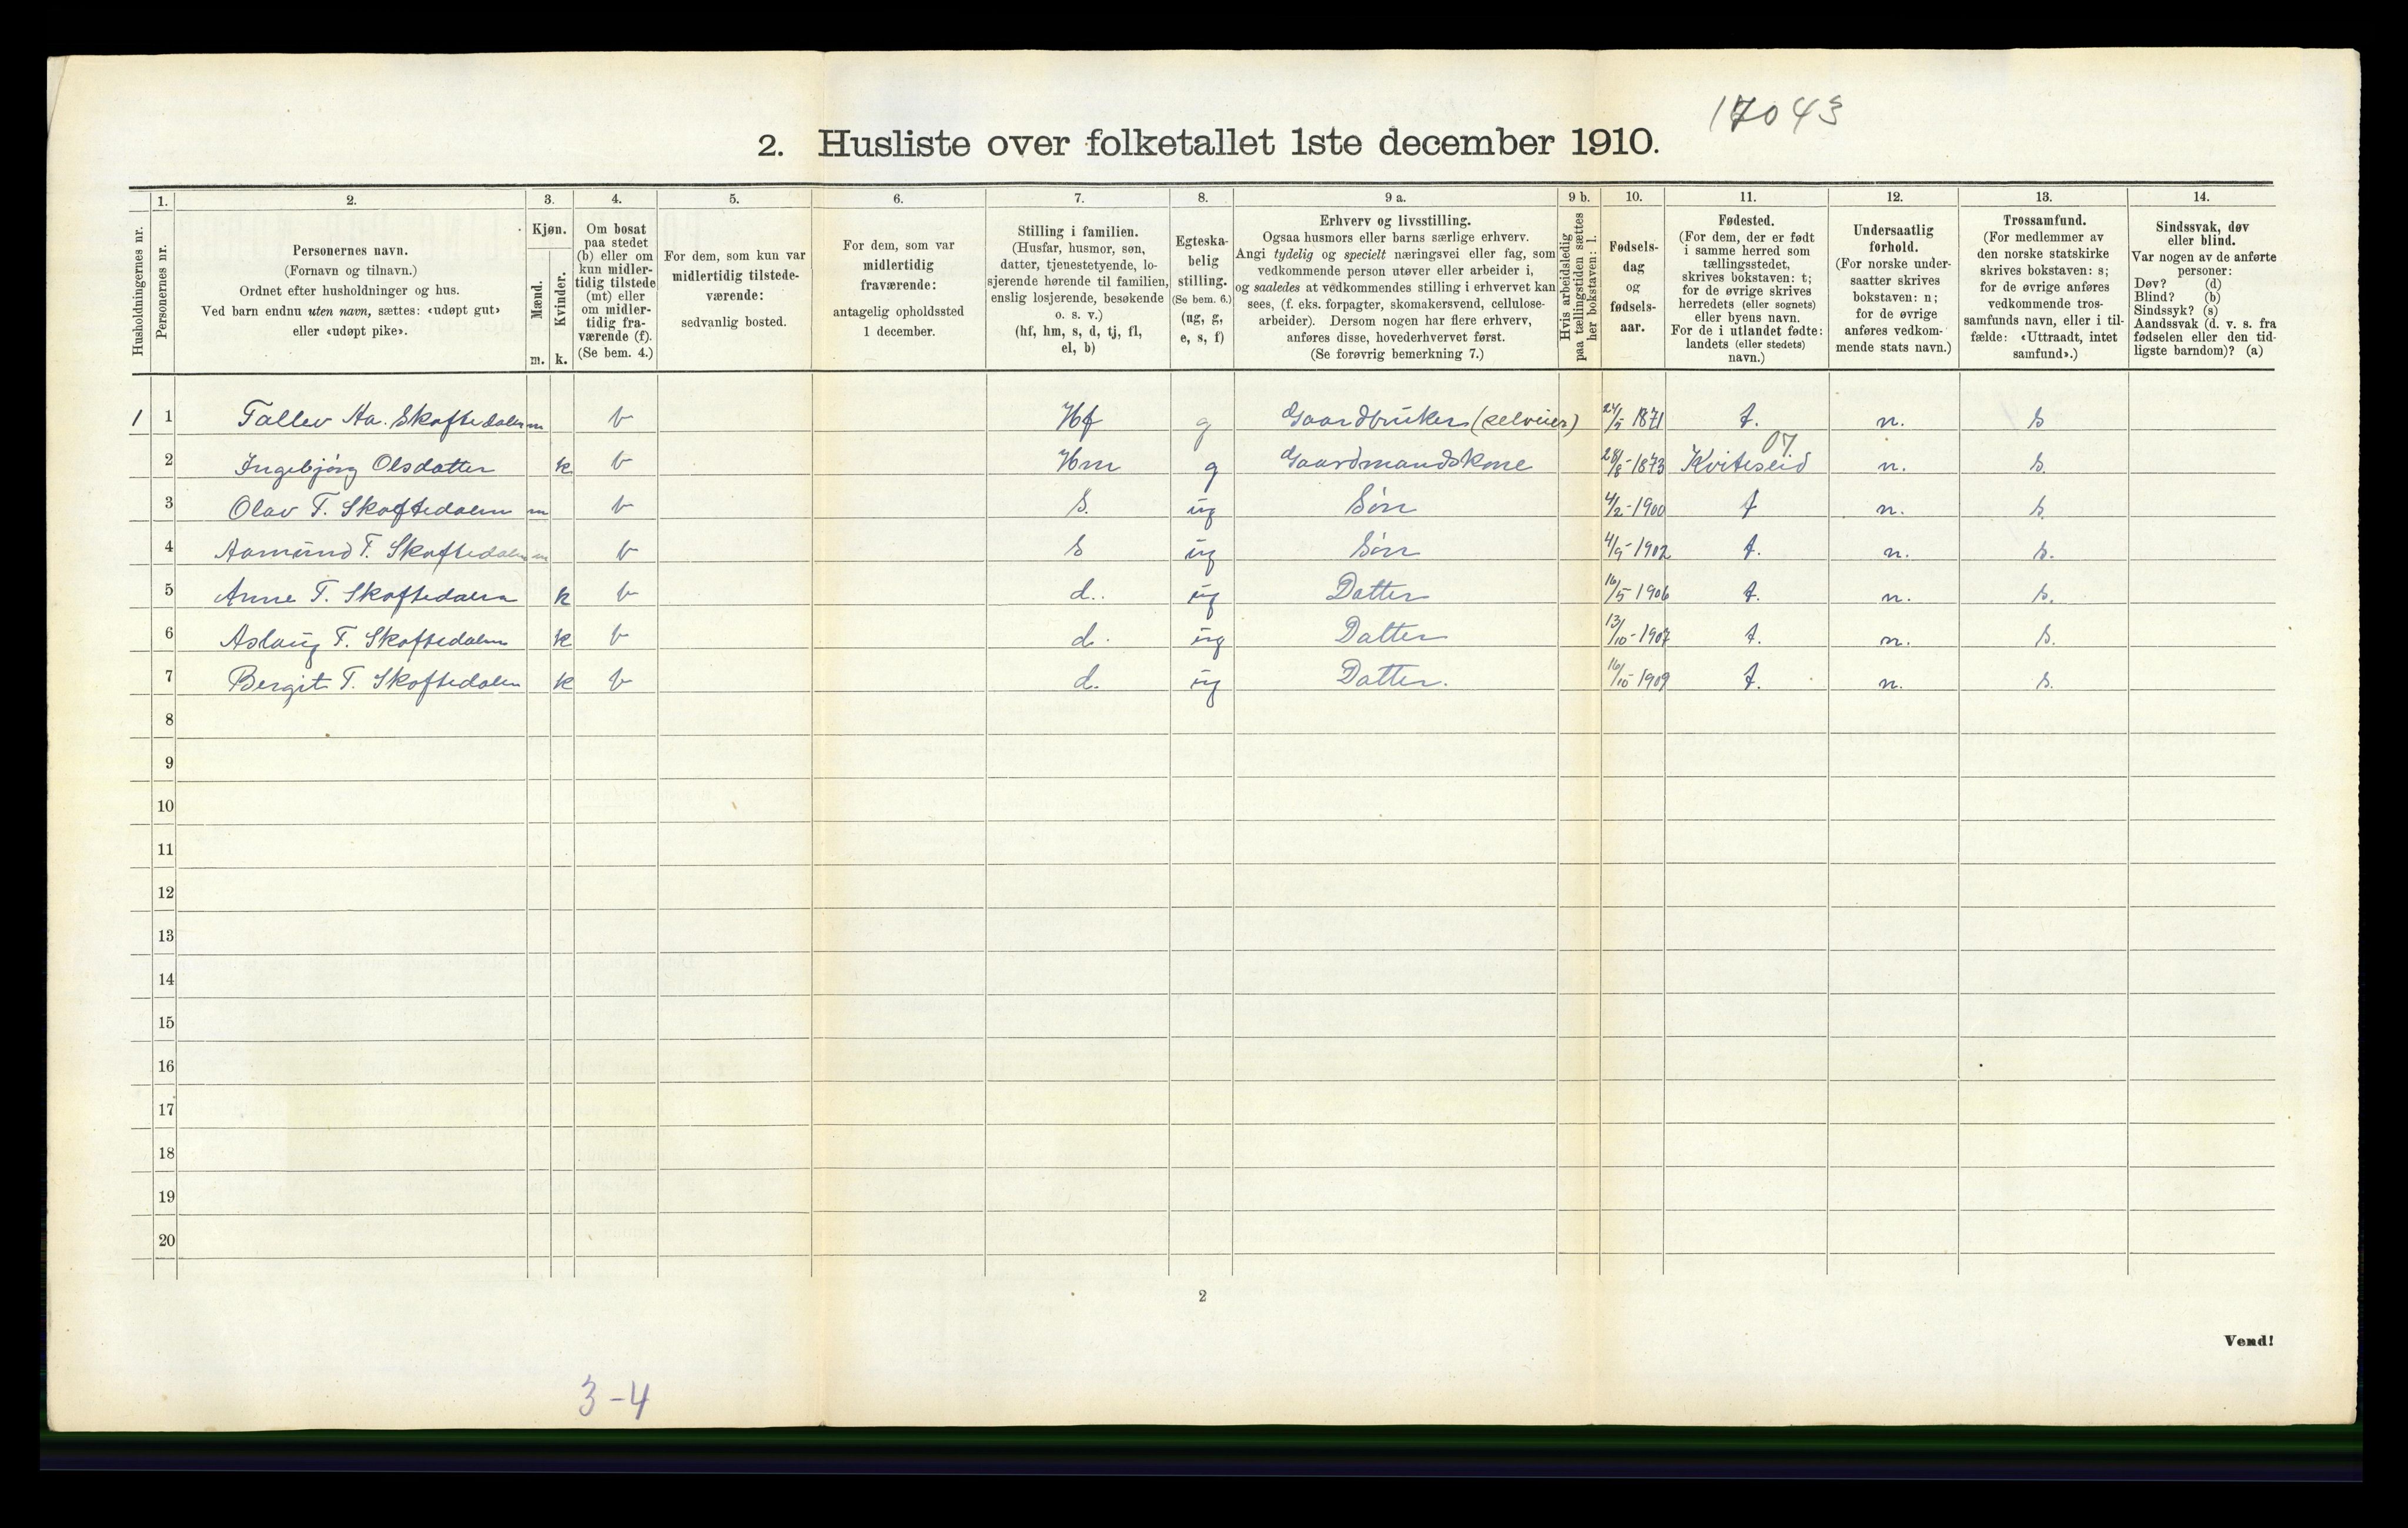 17043
2. Husliste over folketallet 1ste december 1910.
Husholdningernes nr.
1. Personernes nr.
2. Personernes navn. (Fornavn og tilnavn.) Ordnet efter husholdninger og hus. Ved barn endnu uten navn, sættes: «udøpt gut» eller «udøpt pike».
3. Kjøn. Mænd. m. Kvinder. k.
4. Om bosat paa stedet (b) eller om kun midlertidig tilstede (mt) eller om midlertidig fraværende (f). (Se bem. 4.)
5. For dem, som kun var midlertidig tilstedeværende: sedvanlig bosted.
6. For dem, som var midlertidig fraværende: antagelig opholdssted 1 december.
7. Stilling i familien. (Husfar, husmor, søn, datter, tjenestetyende, losjerende hørende til familien, enslig losjerende, besøkende o. s. v.) (hf, hm, s, d, tj, fl, el, b)
8. Egteskabelig stilling. (Se bem. 6.) (ug, g, e, s, f)
9 a. Erhverv og livsstilling. Ogsaa husmors eller barns særlige erhverv. Angi tydelig og specielt næringsvei eller fag, som vedkommende person utøver eller arbeider i, og saaledes at vedkommendes stilling i erhvervet kan sees, (f. eks. forpagter, skomakersvend, cellulosearbeider). Dersom nogen har flere erhverv, anføres disse, hovederhvervet først. (Se forøvrig bemerkning 7.)
9 b. Hvis arbeidsledig paa tællingstiden sættes her bokstaven: l.
10. Fødselsdag og fødselsaar.
11. Fødested. (For dem, der er født i samme herred som tællingsstedet, skrives bokstaven: t; for de øvrige skrives herredets (eller sognets) eller byens navn. For de i utlandet fødte: landets (eller stedets) navn.)
12. Undersaatlig forhold. (For norske undersaatter skrives bokstaven: n; for de øvrige anføres vedkommende stats navn.)
13. Trossamfund. (For medlemmer av den norske statskirke skrives bokstaven: s; for de øvrige anføres vedkommende trossamfunds navn, eller i tilfælde: «Uttraadt, intet samfund».)
14. Sindssvak, døv eller blind. Var nogen av de anførte personer: Døv? (d) Blind? (b) Sindssyk? (s) Aandssvak (d. v. s. fra fødselen eller den tidligste barndom)? (a)
1 1 Tallev Aa. Skaftedalen m b Hf g Gaardbruker (selveier) 24/5 1871 t. n. s
07
2 Ingebjørg Olsdatter k b Hm g Gaardmandskone 28/8-1873 Kviteseid n. s.
3 Olav T. Skaftedalen m b s. ug Søn 4/2-1900 t n. s.
4 Aamund T. Skaftedalen m b s ug Søn 4/9-1902 t. n. s.
5 Anne T. Skaftedalen k b d. ug Datter 16/5 1906 t. n. s.
6 Aslaug T. Skaftedalen k b d. ug Datter 13/10-1907 t. n. s.
7 Bergit T. Skaftedalen k b d. ug Datter. 16/10 1909 t. n. s.
8
9
10
11
12
13
14
15
16
17
18
19
20
2
Vend!
3-4